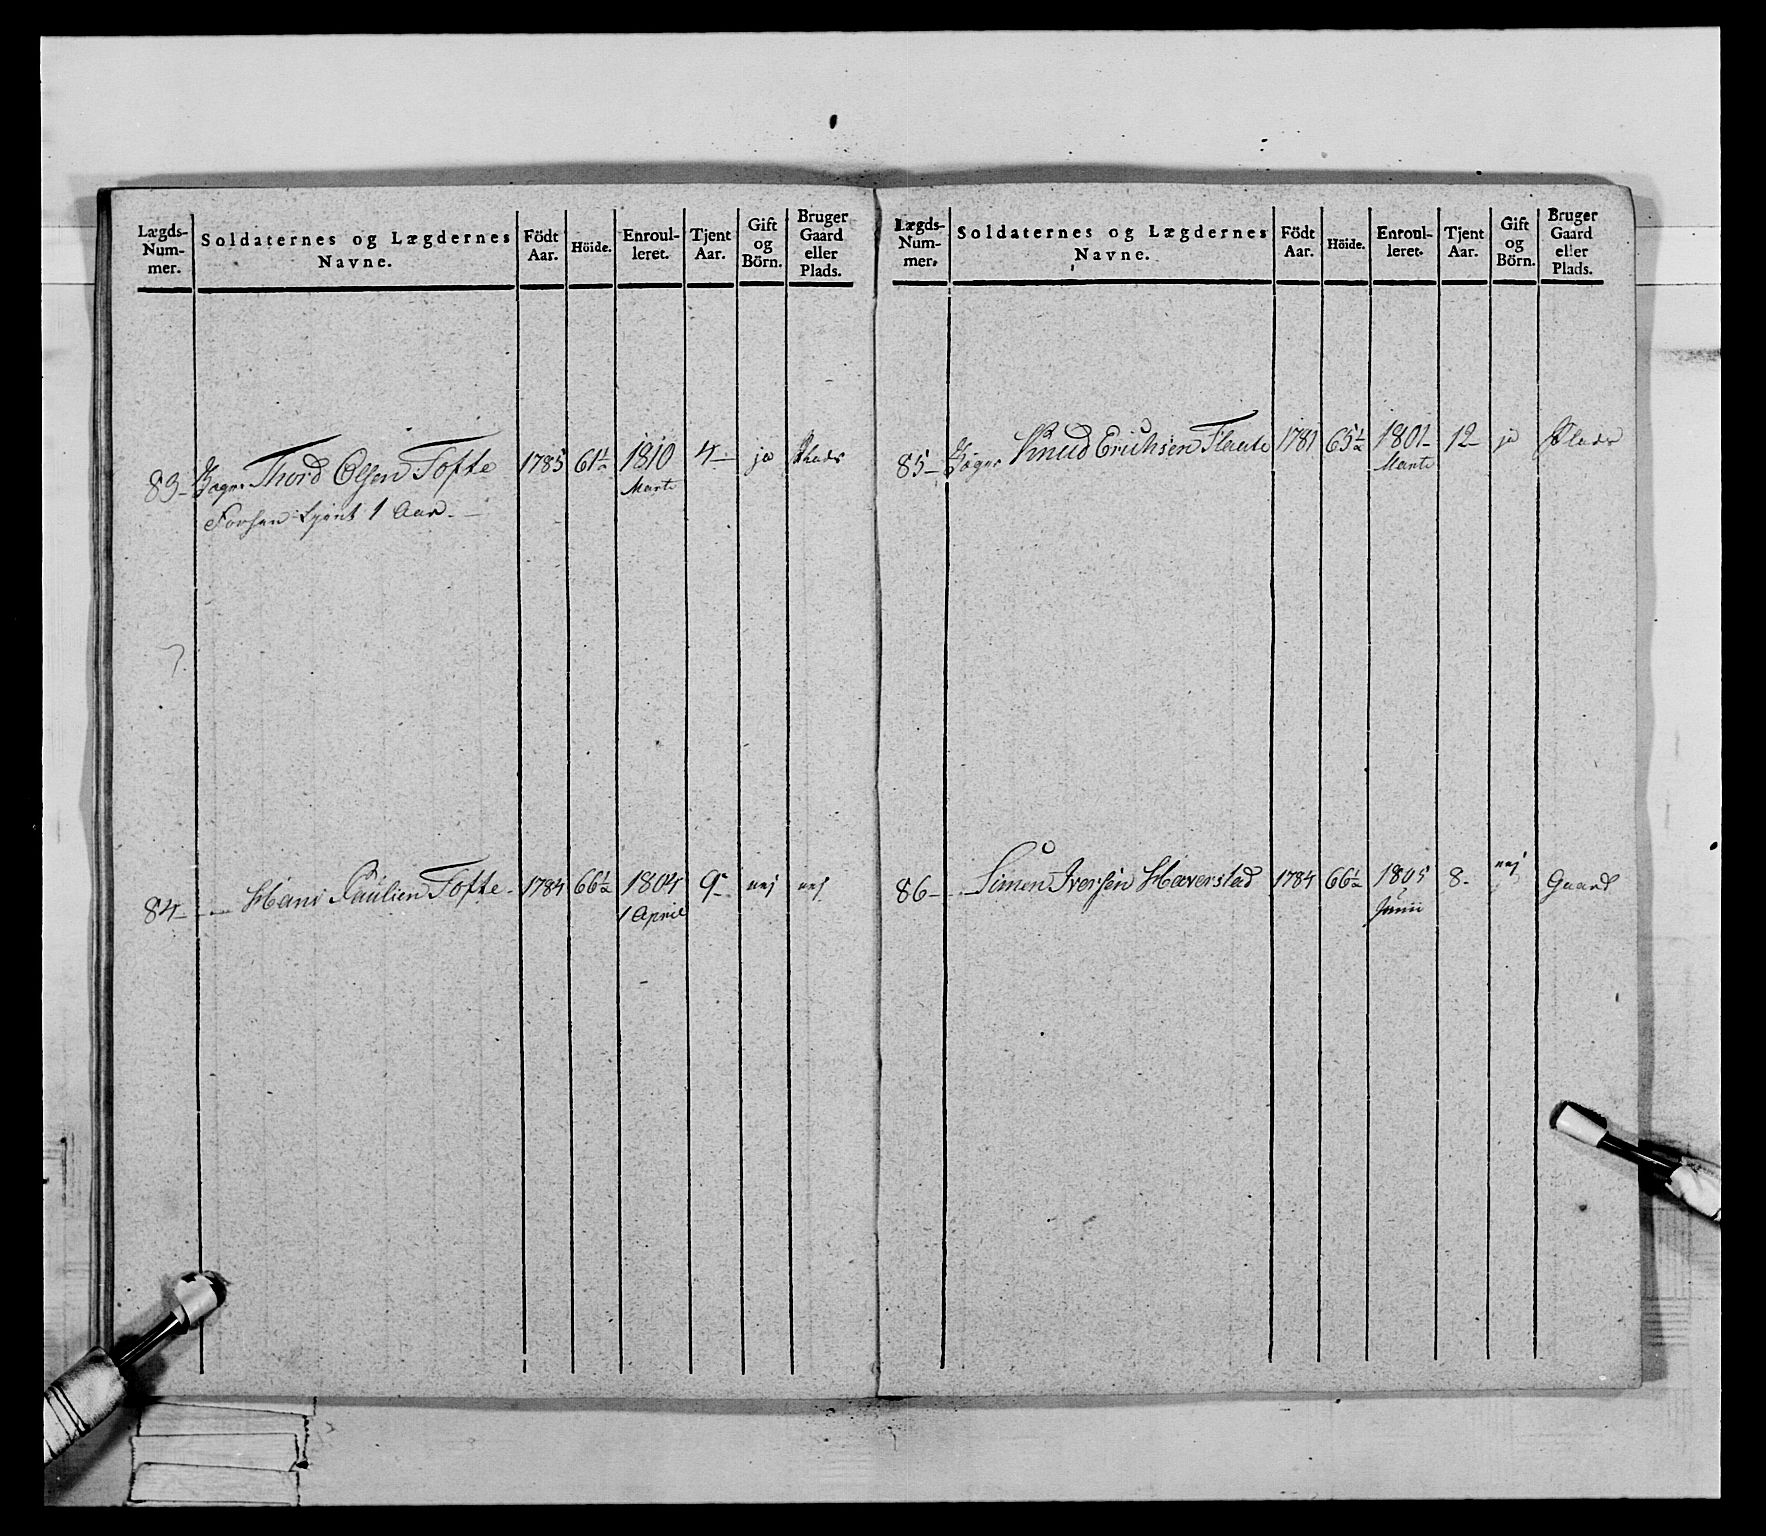 Lægds- Num- mer. | Soldaternes og Lægdernes Navne. | Födt Aar. | Höide. | Enroul- leret. | Tjent Aar. | Gift og Börn. | Bruger Gaard eller Plads.
83- Thord Olsen Tofte 1785 61½ 1810 4- ja Plads
Marti
Forhen tjent 1 Aar.
84- Hans Paulsen Tofte 1784 66½ 1804 9- nej nej
1 April
Lægds- Num- mer. | Soldaternes og Lægdernes Navne. | Födt Aar. | Höide. | Enroul- leret. | Tjent Aar. | Gift og Börn. | Bruger Gaard eller Plads.
85- Knud Erichsen Flaate 1781 65½ 1801 12- ja Plads
Marti
86- Simen Iversen Haverstad 1784 66½ 1805 8- nej Gaard
Junii